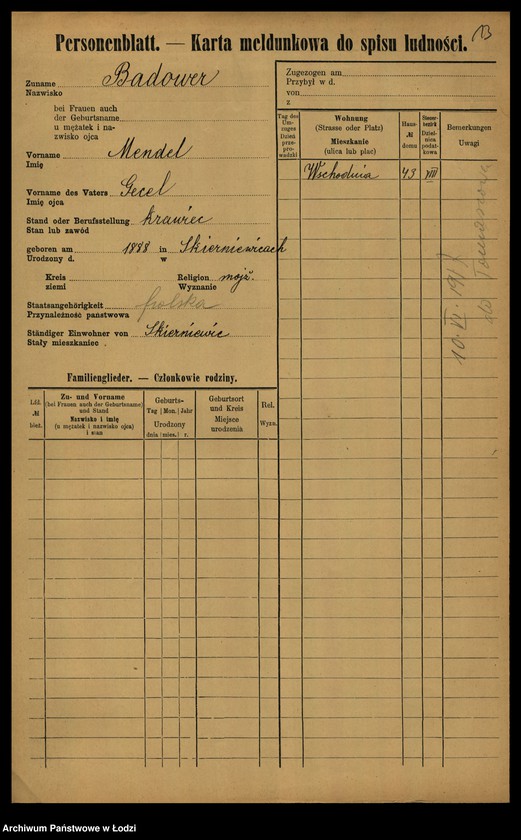 13
Personenblatt. — Karta meldunkowa do spisu ludności.
Zuname Badower
Nazwisko
bei Frauen auch
der Geburtsname
u mężatek i na-
zwisko ojca
Vorname Mendel
Imię
Vorname des Vaters Gecel
Imię ojca
Stand oder Berufsstellung krawiec
Stan lub zawód
geboren am 1888 in Skierniewicach
Urodzony d. w
Kreis Religion mojż.
ziemi Wyznanie
Staatsangehörigkeit polska
Przynależność państwowa
Ständiger Einwohner von Skierniewic
Stały mieszkaniec
Zugezogen am
Przybył w d.
von
z
Tag des Um-zuges
Dzień prze-pro-wadzki
Wohnung
(Strasse oder Platz)
Mieszkanie
(ulica lub plac)
Haus-
№
domu
Steuer-
bezirk
Dziel-
nica
podat-
kowa
Bemerkungen
Uwagi
Wschodnia 43 VIII
10.VI.1917
do Tomaszowa
Familienglieder. — Członkowie rodziny.
Lfd.
№
bież.
Zu- und Vorname
(bei Frauen auch der Geburtsname)
und Stand
Nazwisko i imię
(u mężatek i nazwisko ojca)
i stan
Geburts-
Tag | Mon. | Jahr
Urodzony
dnia | mies. | r.
Geburtsort
und Kreis
Miejsce
urodzenia
Rel.
Wyzn.
Archiwum Państwowe w Łodzi